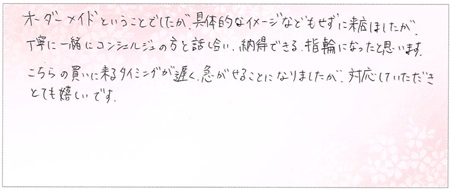 オーダーメイドということでしたが、具体的なイメージなどもせずに来店しましたが、
丁寧に一緒にコンシェルジュの方と話し合い、納得できる指輪になったと思います。
こちらの買いに来るタイミングが遅く、急がせることになりましたが、対応していただき
とても嬉しいです。